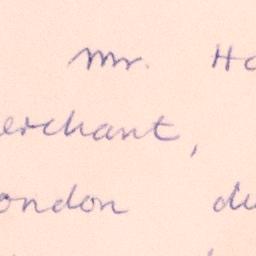 Mr. Ha
erchant,
ondon du